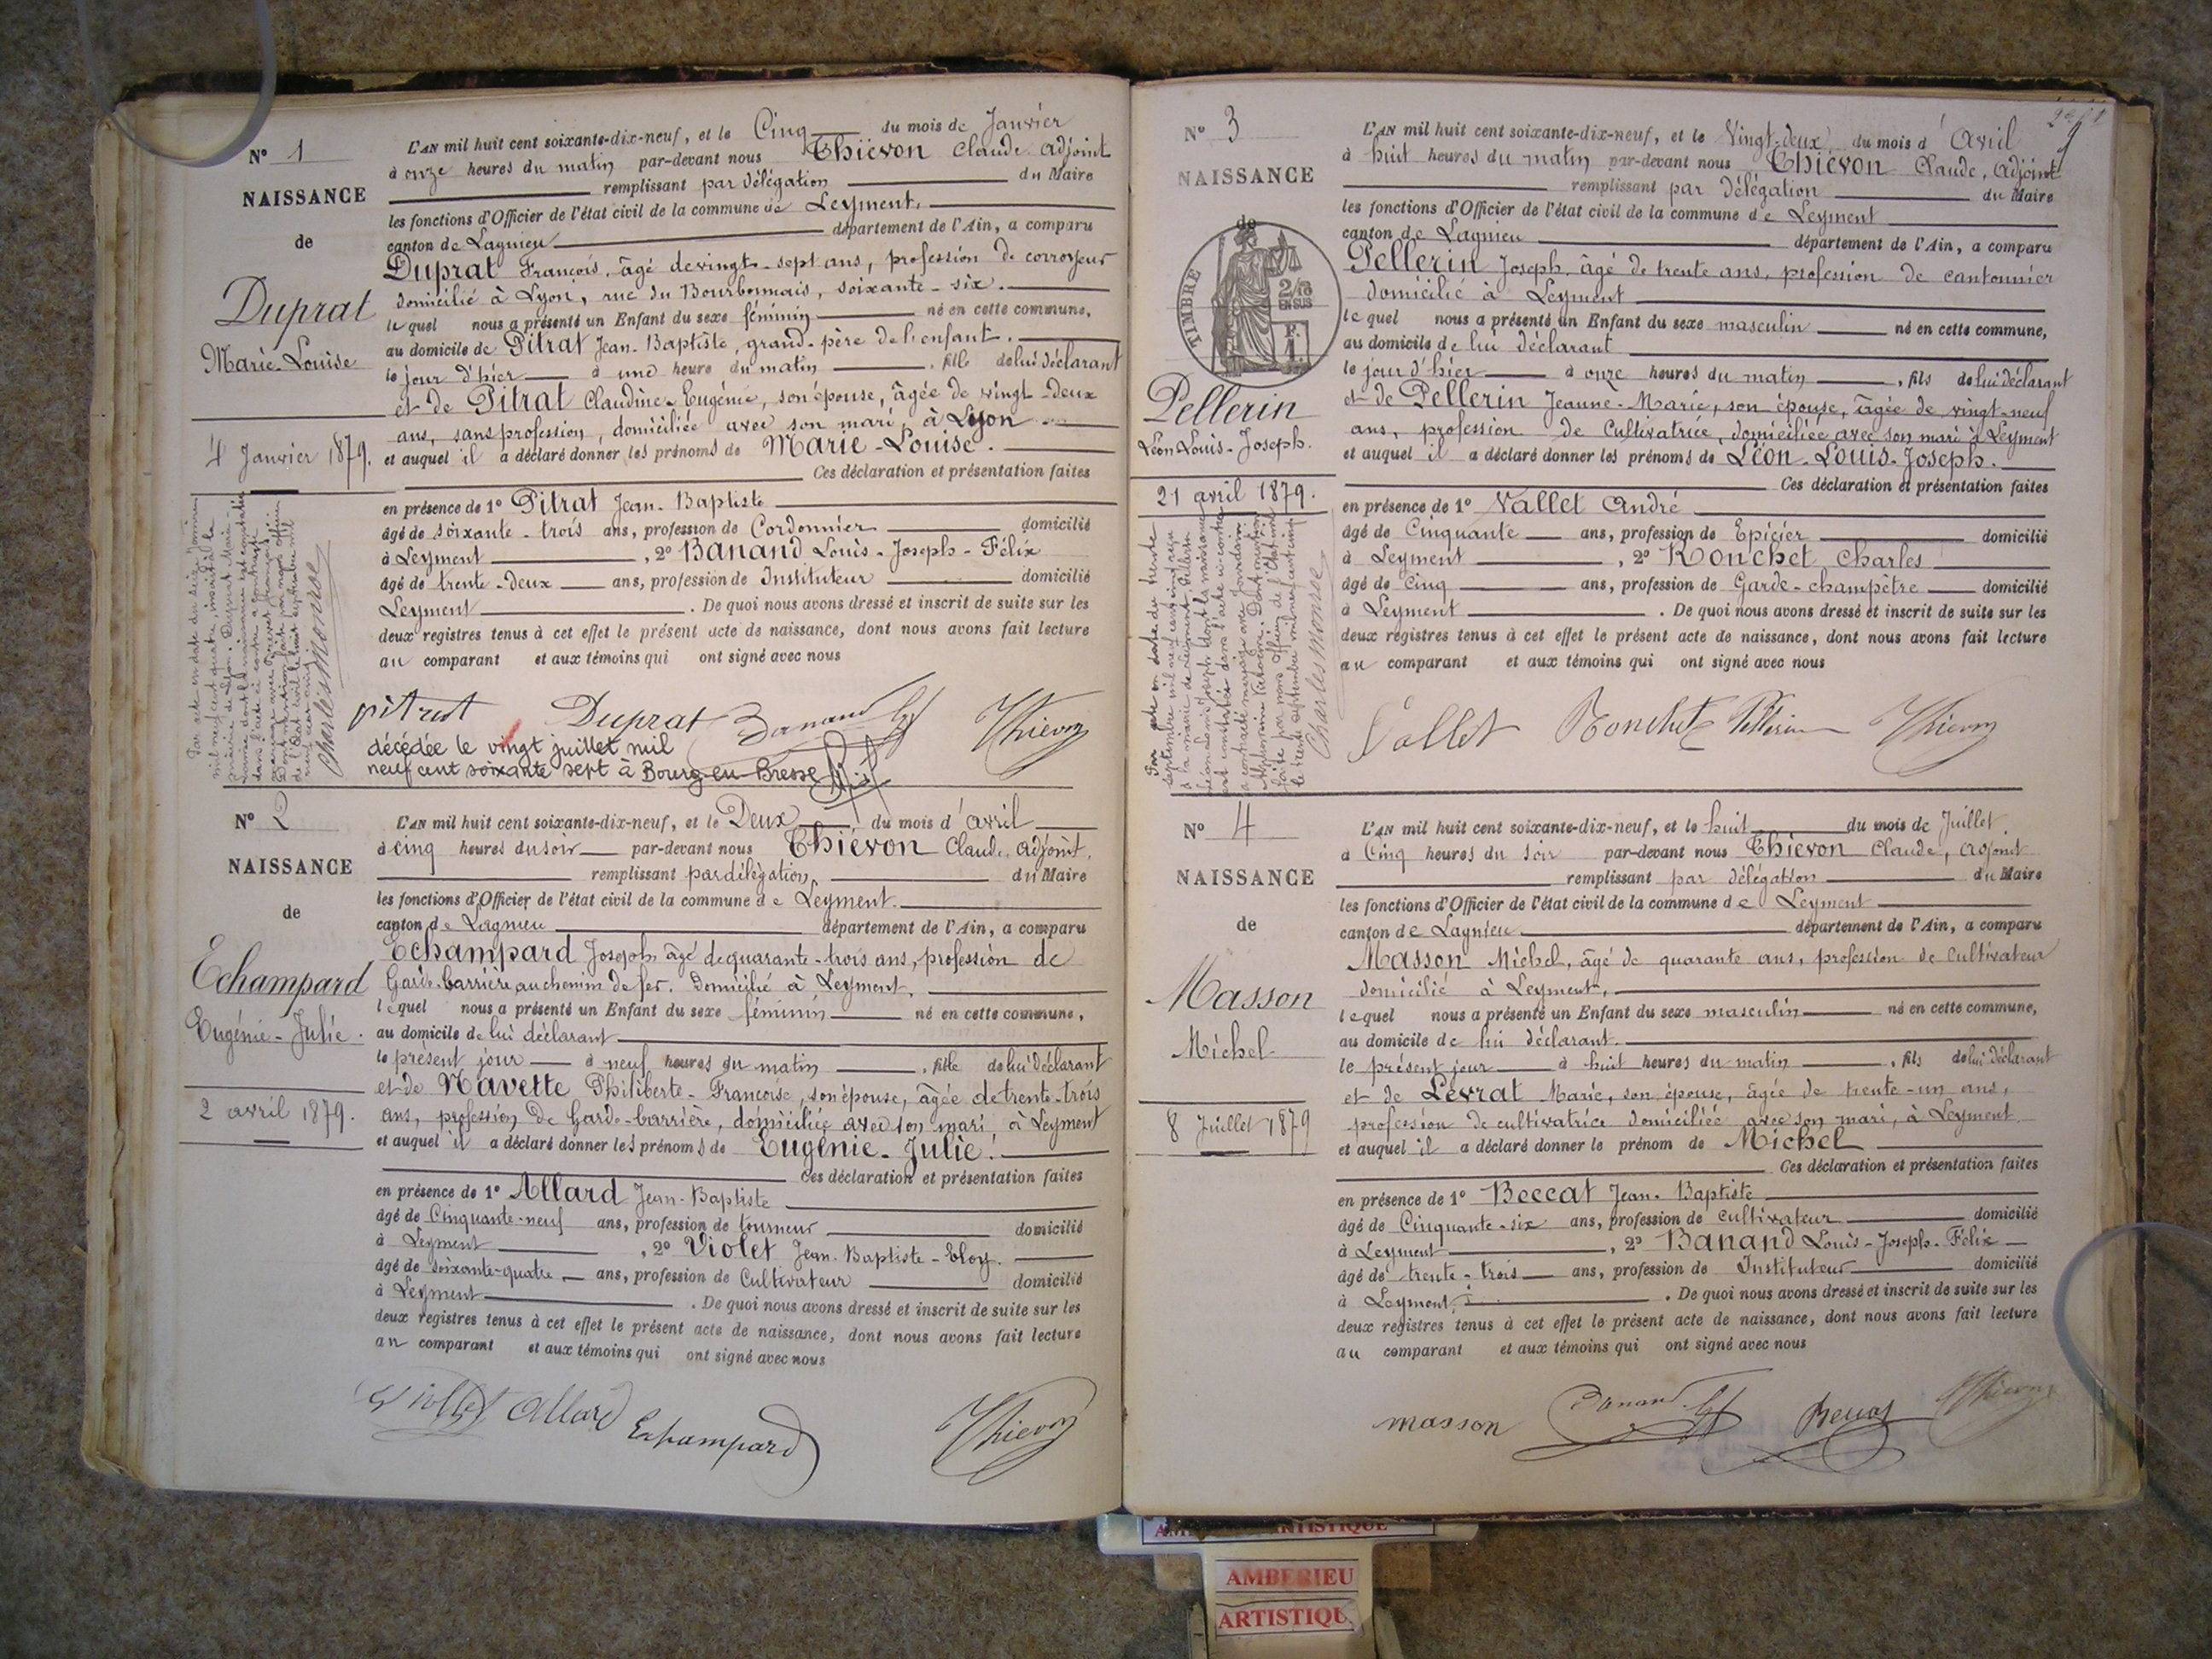 N° 1
NAISSANCE
de
Duprat
Marie-Louise
4 Janvier 1879.
L'AN mil huit cent soixante-dix-neuf, et le Cinq du mois de Janvier
à onze heures du matin par-devant nous Thiévon Claude adjoint
remplissant par délégation du Maire
les fonctions d'Officier de l'état civil de la commune de Leyment,
canton de Lagnieu département de l'Ain, a comparu
Duprat François, âgé de vingt-sept ans, profession de corroyeur
domicilié à Lyon, rue du Bourbonnais, soixante-six.
lequel nous a présenté un Enfant du sexe féminin né en cette commune,
au domicile de Pitrat Jean-Baptiste, grand-père de l'enfant.
le jour d'hier à une heure du matin, fille de lui déclarant
et de Pitrat Claudine-Eugénie, son épouse, âgée de vingt-deux
ans, sans profession, domiciliée avec son mari, à Lyon
et auquel il a déclaré donner les prénoms de Marie-Louise.
Ces déclaration et présentation faites
en présence de 1° Pitrat Jean-Baptiste
âgé de soixante-trois ans, profession de Cordonnier domicilié
à Leyment, 2° Banand Louis-Joseph-Félix
âgé de trente-deux ans, profession de Instituteur domicilié
Leyment. De quoi nous avons dressé et inscrit de suite sur les
deux registres tenus à cet effet le présent acte de naissance, dont nous avons fait lecture
au comparant et aux témoins qui ont signé avec nous
pitrat Duprat Banand Thievon
décédée le vingt juillet mil
neuf cent soixante sept à Bourg-en-Bresse
Charles Monroe
N° 2
NAISSANCE
de
Echampard
Eugénie-Julie.
2 avril 1879.
L'AN mil huit cent soixante-dix-neuf, et le Deux du mois d'avril
à cinq heures du soir par-devant nous Thiévon Claude, adjoint,
remplissant par délégation, du Maire
les fonctions d'Officier de l'état civil de la commune de Leyment.
canton de Lagnieu département de l'Ain, a comparu
Echampard Joseph âgé de quarante-trois ans, profession de
Garde-barrière au chemin de fer. domicilié à Leyment.
lequel nous a présenté un Enfant du sexe féminin né en cette commune,
au domicile de lui déclarant
le présent jour à neuf heures du matin, fille de lui déclarant
et de Navette Philiberte-Françoise, son épouse, âgée de trente-trois
ans, profession de Garde-barrière, domiciliée avec son mari à Leyment
et auquel il a déclaré donner les prénoms de Eugénie-Julie.
Ces déclaration et présentation faites
en présence de 1° Allard Jean-Baptiste
âgé de Cinquante-neuf ans, profession de tourneur domicilié
à Leyment, 2° Violet Jean-Baptiste-Eloy.
âgé de soixante-quatre ans, profession de Cultivateur domicilié
à Leyment. De quoi nous avons dressé et inscrit de suite sur les
deux registres tenus à cet effet le présent acte de naissance, dont nous avons fait lecture
au comparant et aux témoins qui ont signé avec nous
Violet Allard Echampard Thievon
N° 3
NAISSANCE
de
TIMBRE
2/10
EN SUS
F.
1.
Pellerin
Léon-Louis-Joseph.
21 avril 1879.
L'AN mil huit cent soixante-dix-neuf, et le Vingt-deux du mois d'Avril
à huit heures du matin par-devant nous Thiévon Claude, adjoint
remplissant par délégation du Maire
les fonctions d'Officier de l'état civil de la commune de Leyment
canton de Lagnieu département de l'Ain, a comparu
Pellerin Joseph, âgé de trente ans, profession de cantonnier
domicilié à Leyment
lequel nous a présenté un Enfant du sexe masculin né en cette commune,
au domicile de lui déclarant
le jour d'hier à onze heures du matin, fils de lui déclarant
et de Pellerin Jeanne-Marie, son épouse, âgée de vingt-neuf
ans, profession de Cultivatrice, domiciliée avec son mari à Leyment
et auquel il a déclaré donner les prénoms de Léon-Louis-Joseph.
Ces déclaration et présentation faites
en présence de 1° Vallet André
âgé de Cinquante ans, profession de Epicier domicilié
à Leyment, 2° Ronchet Charles
âgé de Cinq ans, profession de Garde-champêtre domicilié
à Leyment. De quoi nous avons dressé et inscrit de suite sur les
deux registres tenus à cet effet le présent acte de naissance, dont nous avons fait lecture
au comparant et aux témoins qui ont signé avec nous
Vallet Ronchet Pellerin Thievon
Charles Monroe
N° 4
NAISSANCE
de
Masson
Michel
8 Juillet 1879
L'AN mil huit cent soixante-dix-neuf, et le huit du mois de Juillet.
à Cinq heures du soir par-devant nous Thiévon Claude, adjoint
remplissant par délégation du Maire
les fonctions d'Officier de l'état civil de la commune de Leyment
canton de Lagnieu département de l'Ain, a comparu
Masson Michel, âgé de quarante ans, profession de Cultivateur
domicilié à Leyment,
lequel nous a présenté un Enfant du sexe masculin né en cette commune,
au domicile de lui déclarant.
le présent jour à huit heures du matin, fils de lui déclarant
et de Levrat Marie, son épouse, âgée de trente-un ans,
profession de cultivatrice domiciliée avec son mari, à Leyment.
et auquel il a déclaré donner le prénom de Michel
Ces déclaration et présentation faites
en présence de 1° Beccat Jean-Baptiste
âgé de Cinquante-six ans, profession de cultivateur domicilié
à Leyment, 2° Banand Louis-Joseph-Félix
âgé de trente-trois ans, profession de Instituteur domicilié
à Leyment. De quoi nous avons dressé et inscrit de suite sur les
deux registres tenus à cet effet le présent acte de naissance, dont nous avons fait lecture
au comparant et aux témoins qui ont signé avec nous
masson Banand Beccat Thievon
AMBERIEU
ARTISTIQU